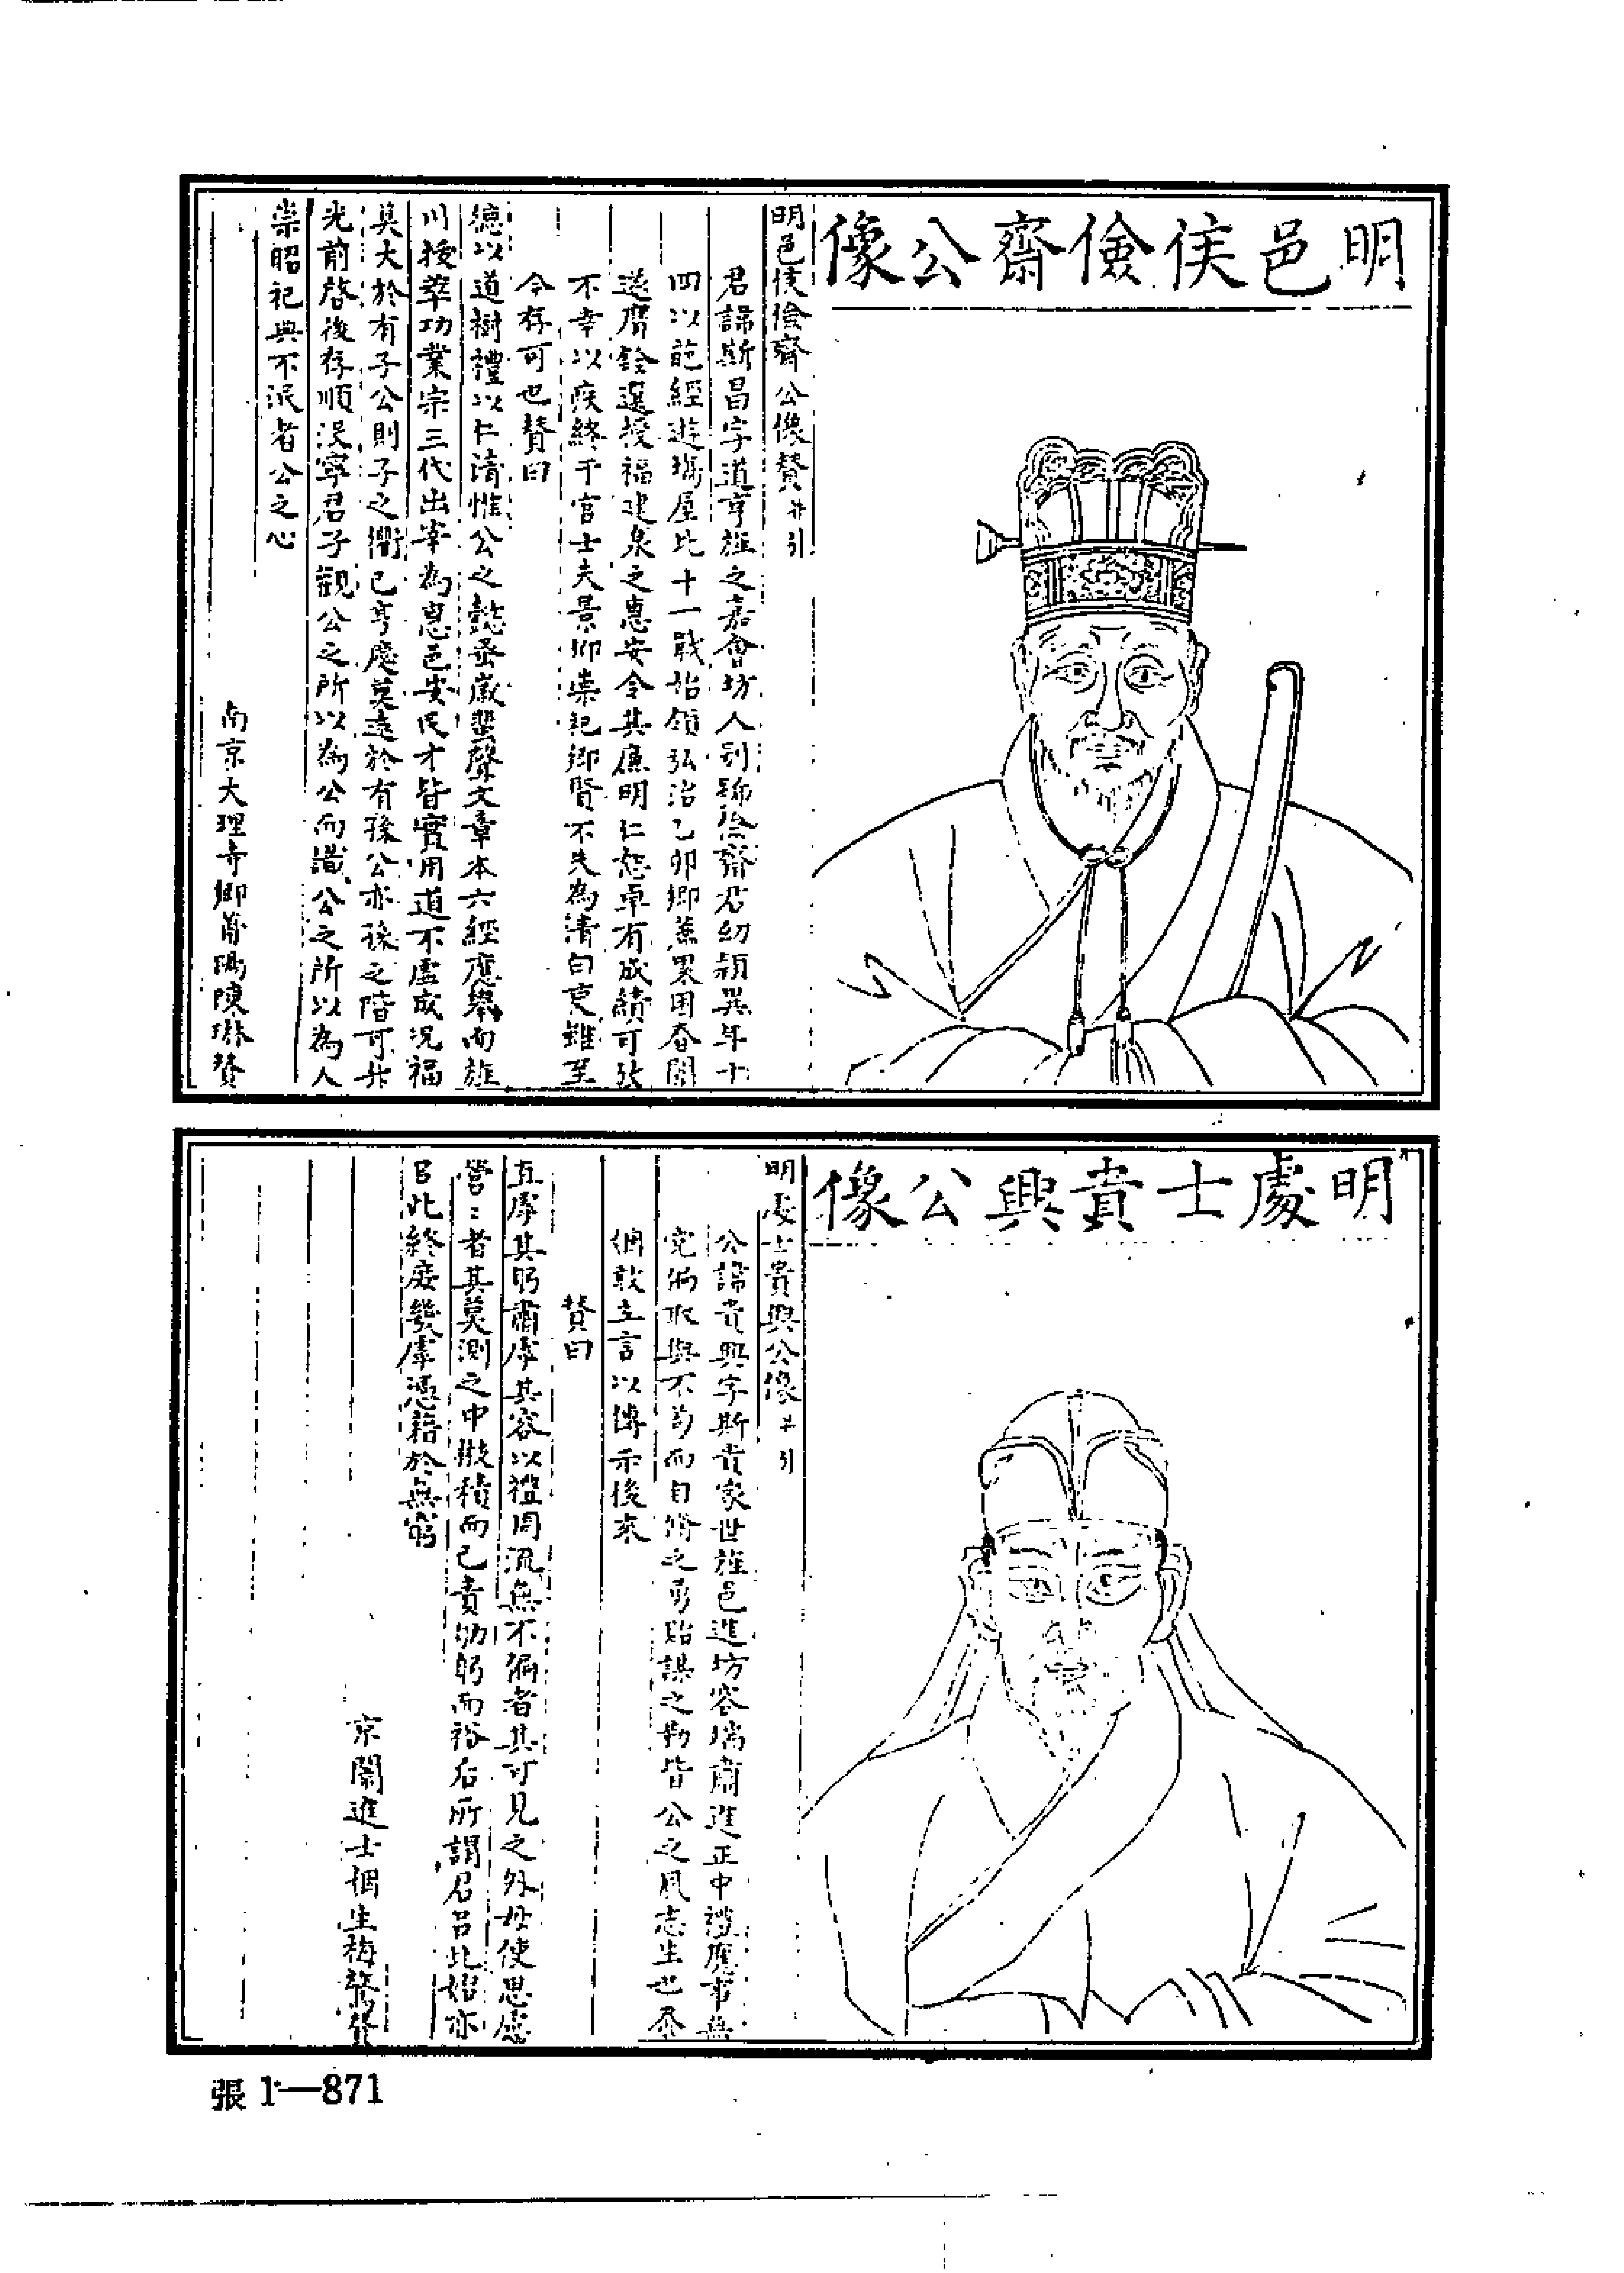 明邑侯儉齋公像
明邑侯儉齋公像贊并引
君諱斯昌字道亨旌之嘉會坊人別號儉齋君幼穎異年十
四以葩經遊場屋比十一戰始領弘治乙卯鄉薦累困春闈
遂膺銓選授福建泉之惠安令其廉明仁恕卓有成績可攷
不幸以疾終于官士夫景仰崇祀鄉賢不失為清白吏雖至
今存可也贊曰
德以道樹禮以仁清惟公之懿蚤歲蜚聲文章本六經應舉而旌
川授萃功業宗三代出宰為惠邑安民才皆實用道不虛成況福
莫大於有子公則子之衢已亨慶莫遠於有孫公亦孫之階可升
光前啓後存順沒寧君子觀公之所以為公而識公之所以為人
崇昭祀典不泯者公之心
南京大理寺卿陳琳贊
明處士貴興公像
明處士貴興公像并引
公諱貴興字斯貴家世旌邑進坊容端肅進正中禮應事無
究偏取與不苟而自脩之勇貽謀之勤皆公之風志生也忝
姻敢立言以傳示後來
贊曰
直虖其躬肅虖其容以禮周流無不偏者其可見之外毋使思慮
營營者其莫測之中撙積而己責劬躬而裕后所謂君呂此始亦
呂此終庶幾虖憑藉於無窮
京闈進士姻生梅鶚贊
張1—871